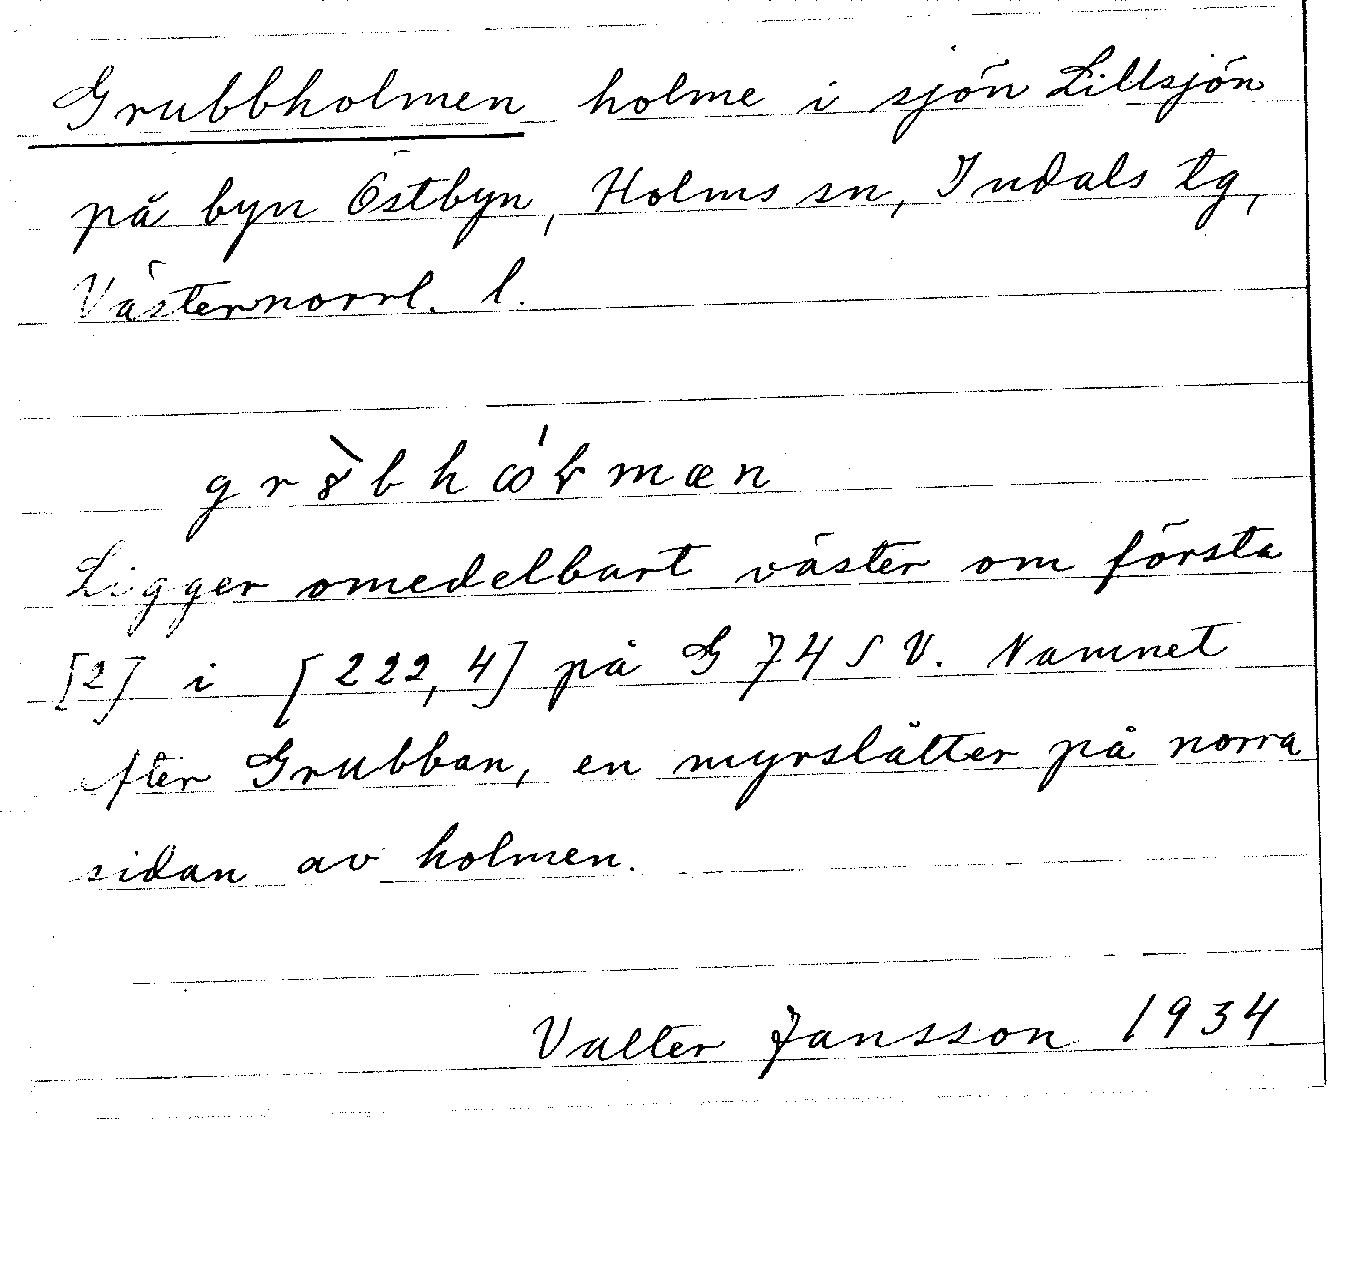 Grubbholmen holme i sjön Lillsjön
på byn Östbyn, Holms sn, Indals tg,
Västernorrl. l.
Ligger omedelbart väster om första
[2] i [222,4] på G 74 SV. Namnet
efter Grubban, en myrslåtter på norra
sidan av holmen.
Valter Jansson 1934